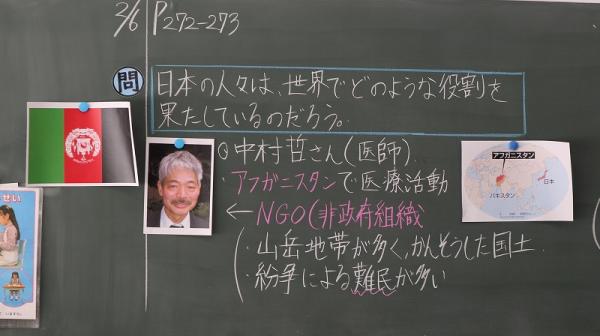 2/6 P272-273
問 日本の人々は、世界でどのような役割を
果たしているのだろう。
◎中村哲さん(医師)
・アフガニスタンで医療活動
←NGO(非政府組織
・山岳地帯が多く、かんそうした国土
・紛争による難民が多い
アフガニスタン
日本
パキスタン
せい